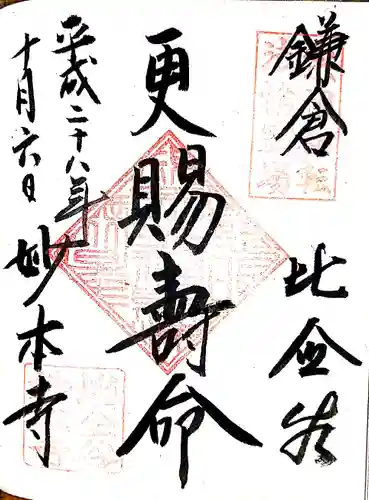 鎌倉
比企谷
更賜壽命
平成二十八年
十月六日
妙本寺